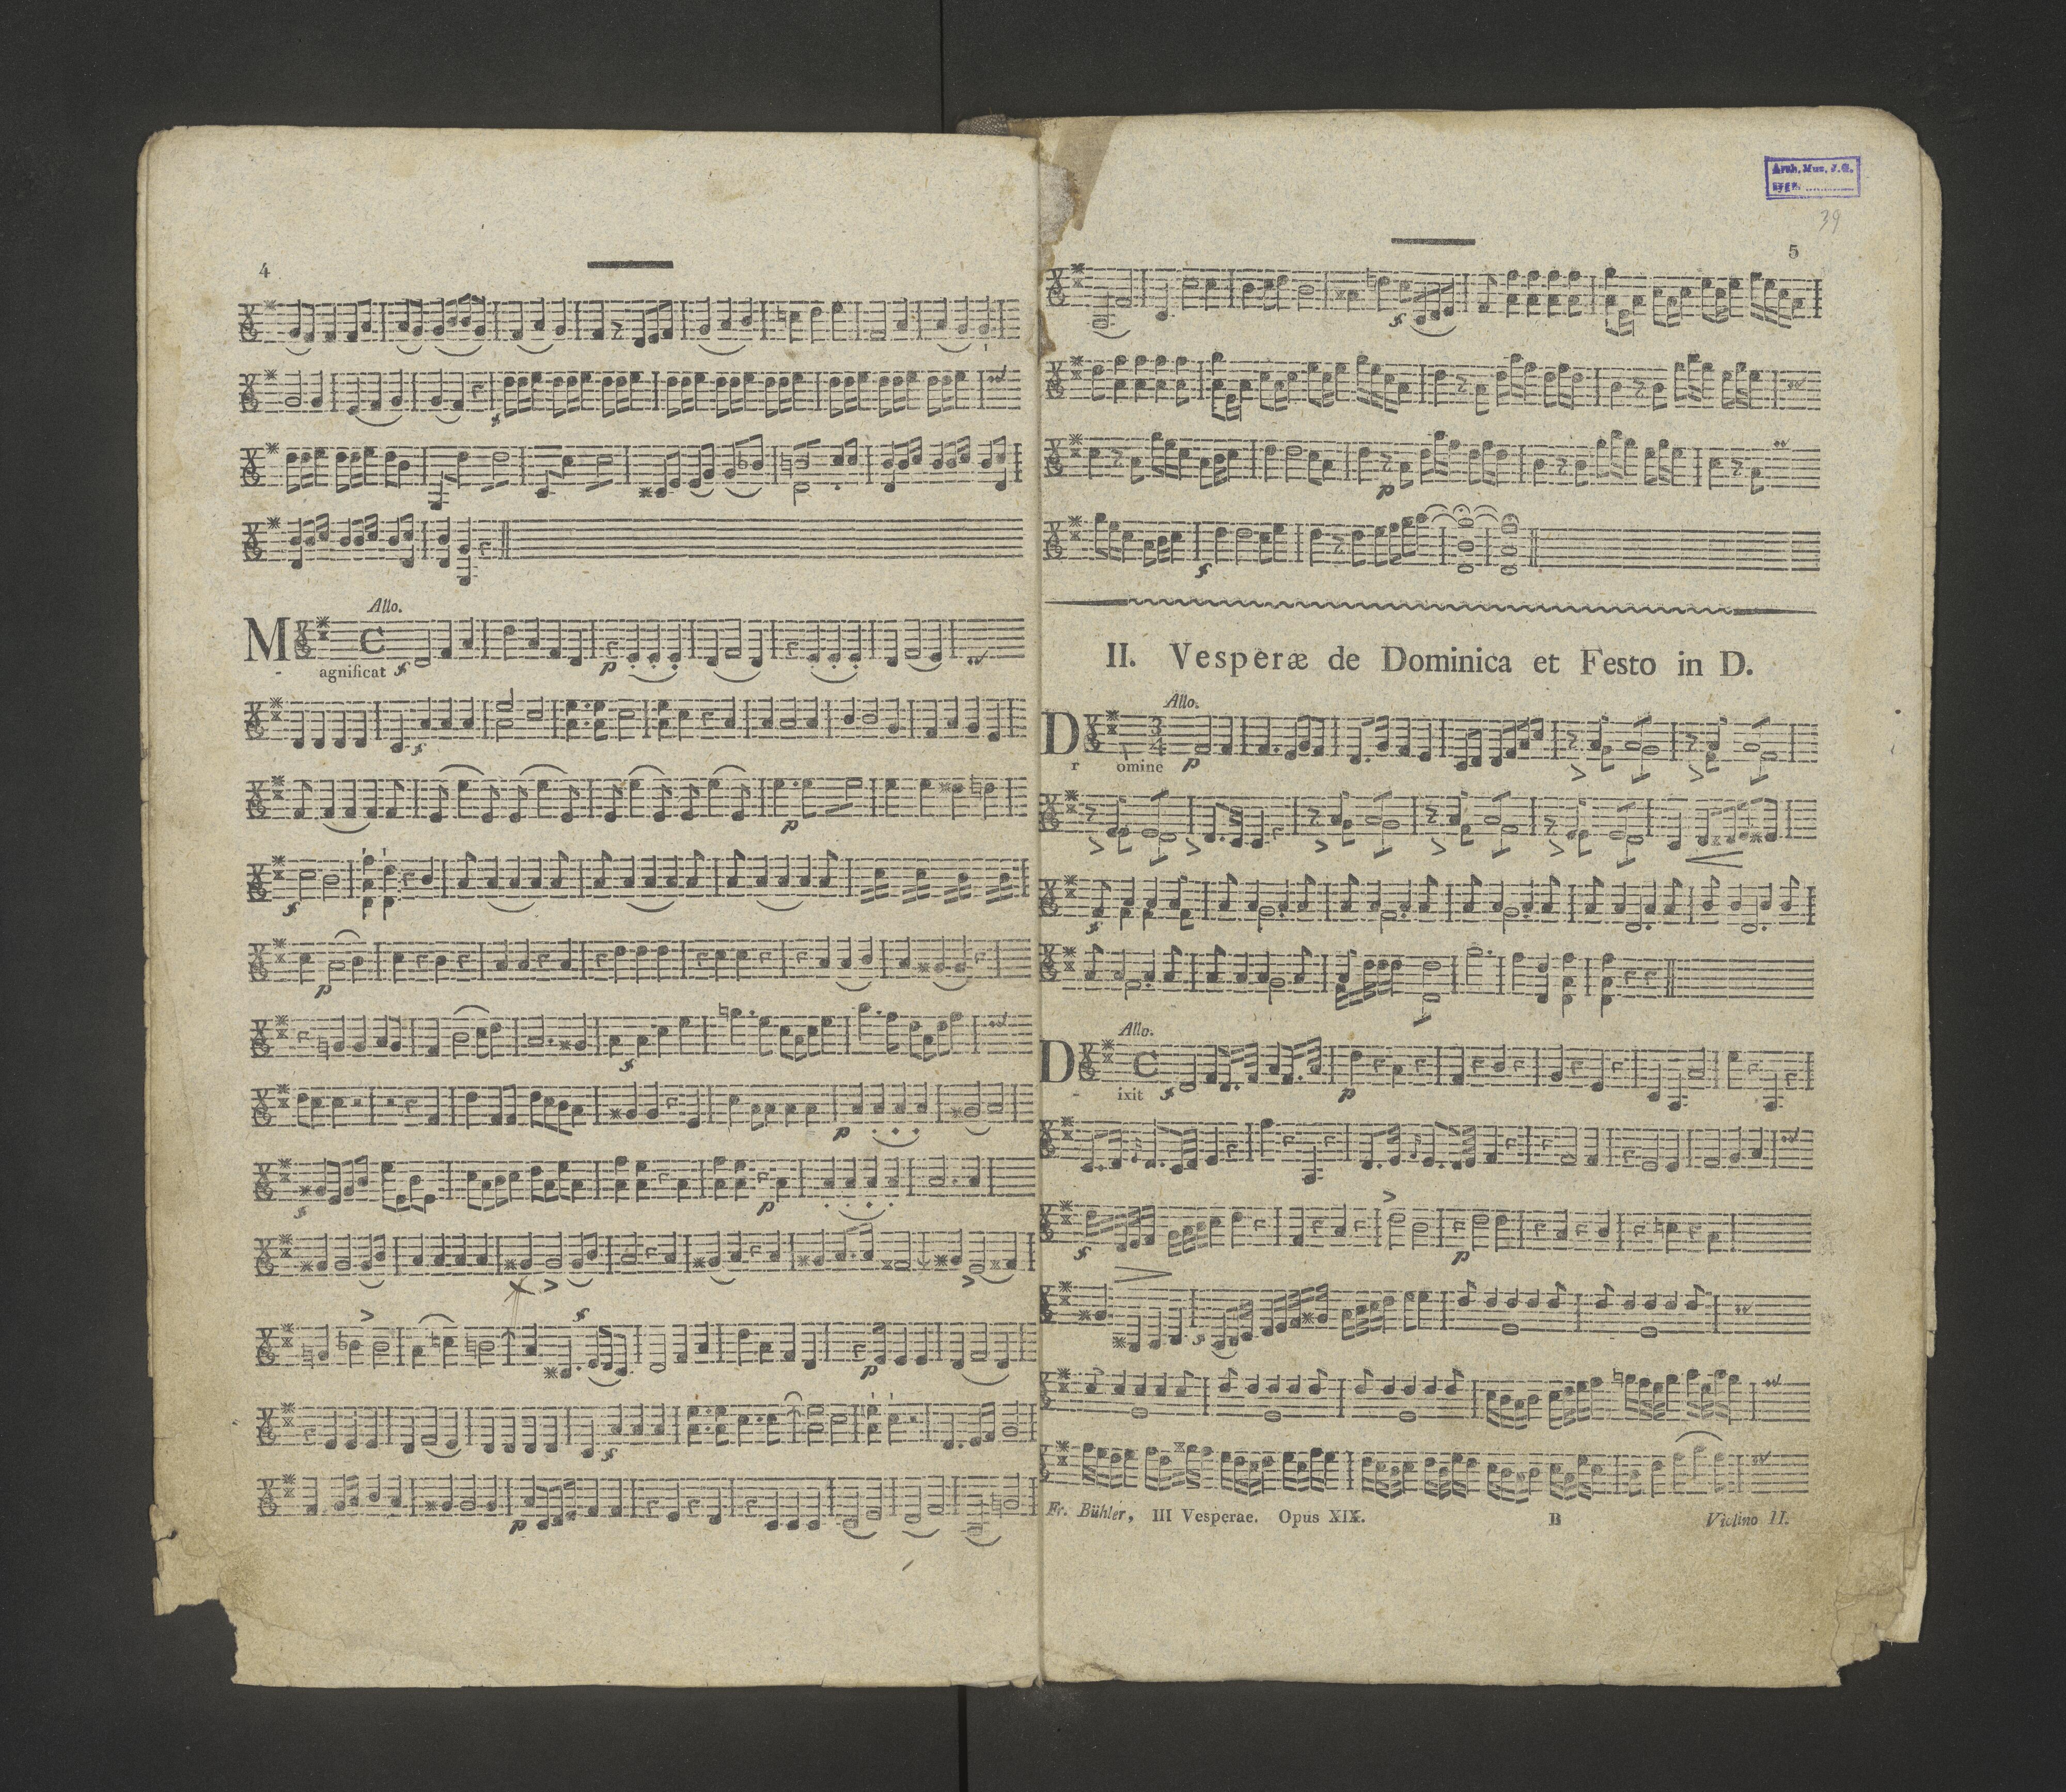 4
Allo.
M
agnificat
Arch. Mus. J. G.
sygn.
39
5
II. Vesperæ de Dominica et Festo in D.
Allo.
D
omine
Allo.
D
ixit
Fr. Bühler, III Vesperae. Opus XIX. B Violino II.